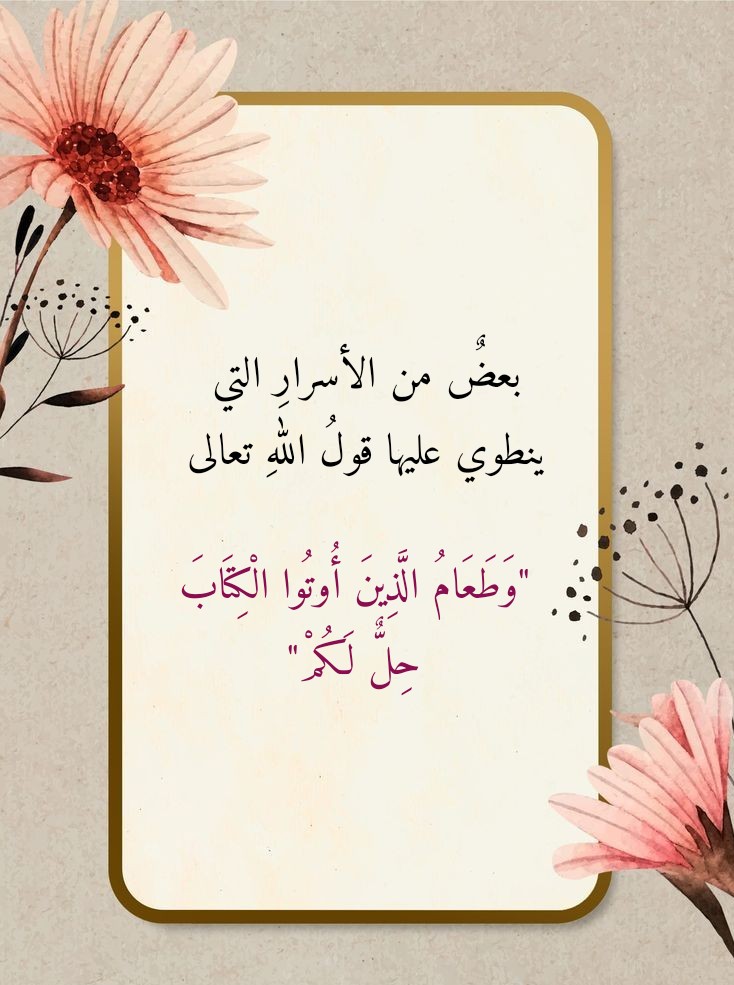 بعضٌ من الأسرارِ التي
ينطوي عليها قولُ اللهِ تعالى
"وَطَعَامُ الَّذِينَ أُوتُوا الْكِتَابَ
حِلٌّ لَكُمْ"